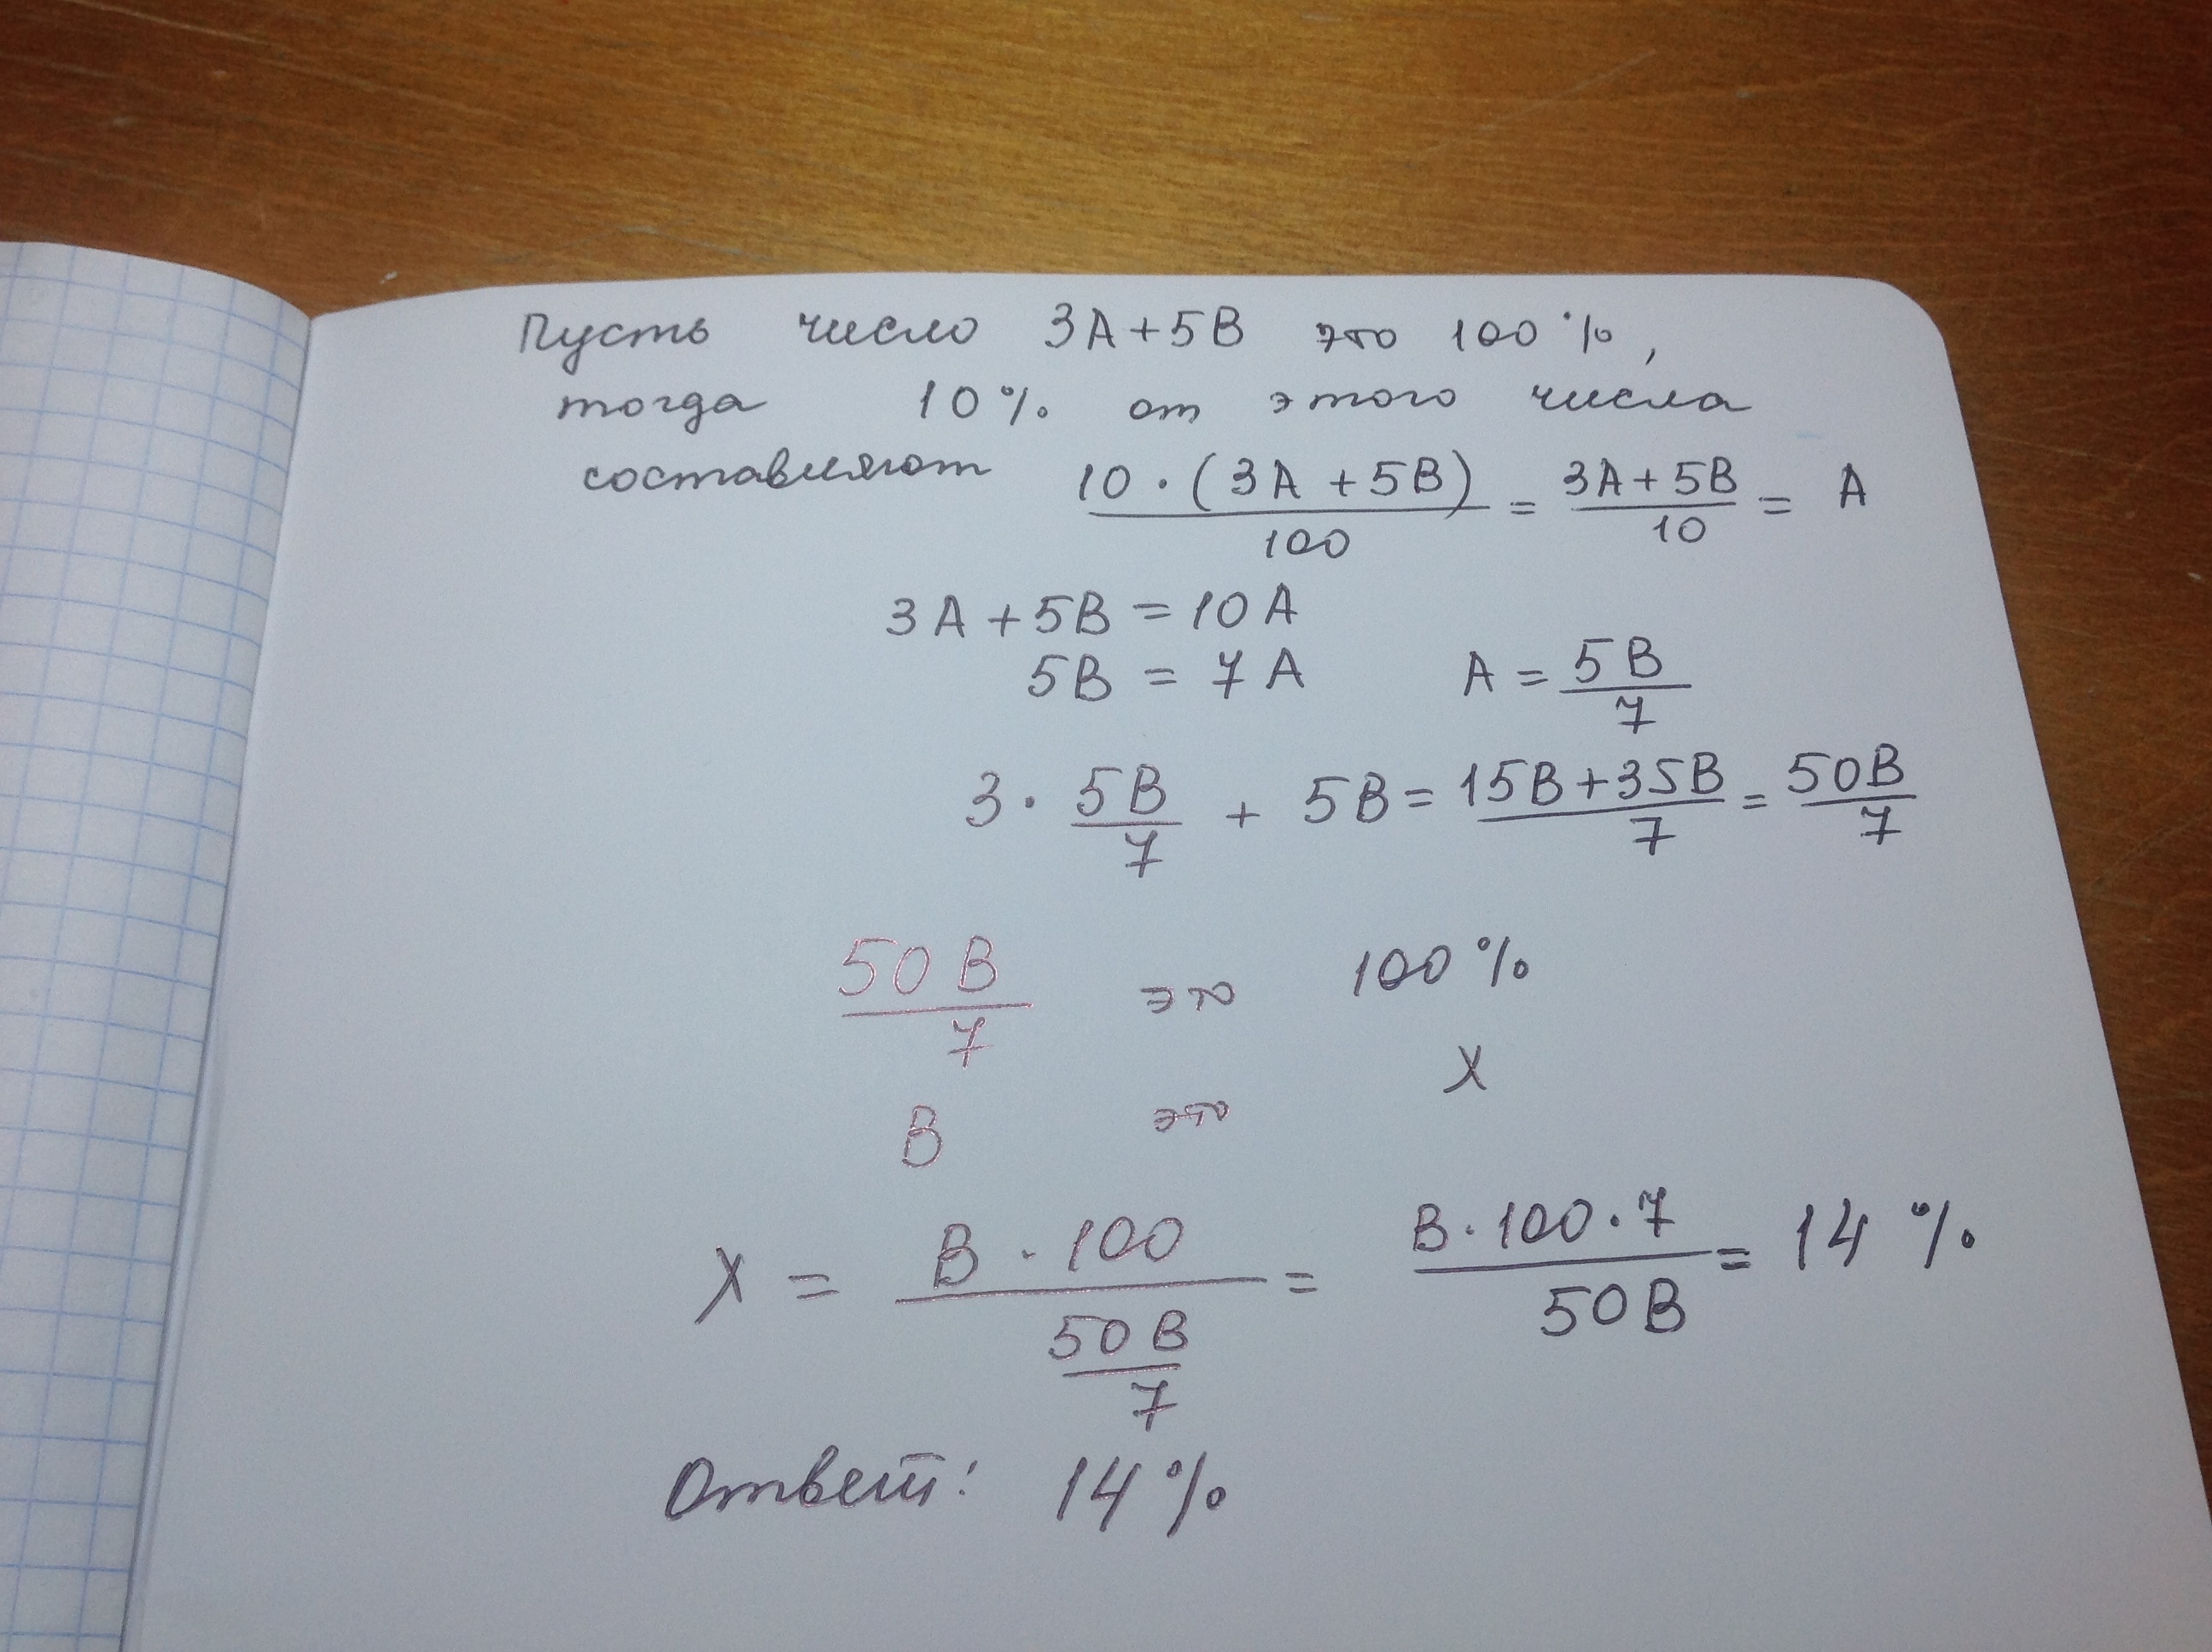 Пусть число 3А+5В это 100%,
тогда 10% от этого числа
составляют 10·(3А+5В)/100 = 3А+5В/10 = А
3А+5В=10А
5В = 7А А = 5В/7
3· 5В/7 + 5В = 15В+35В/7 = 50В/7
50В/7 это 100%
В это Х
Х = В·100/50В/7 = В·100·7/50В = 14%
Ответ: 14%